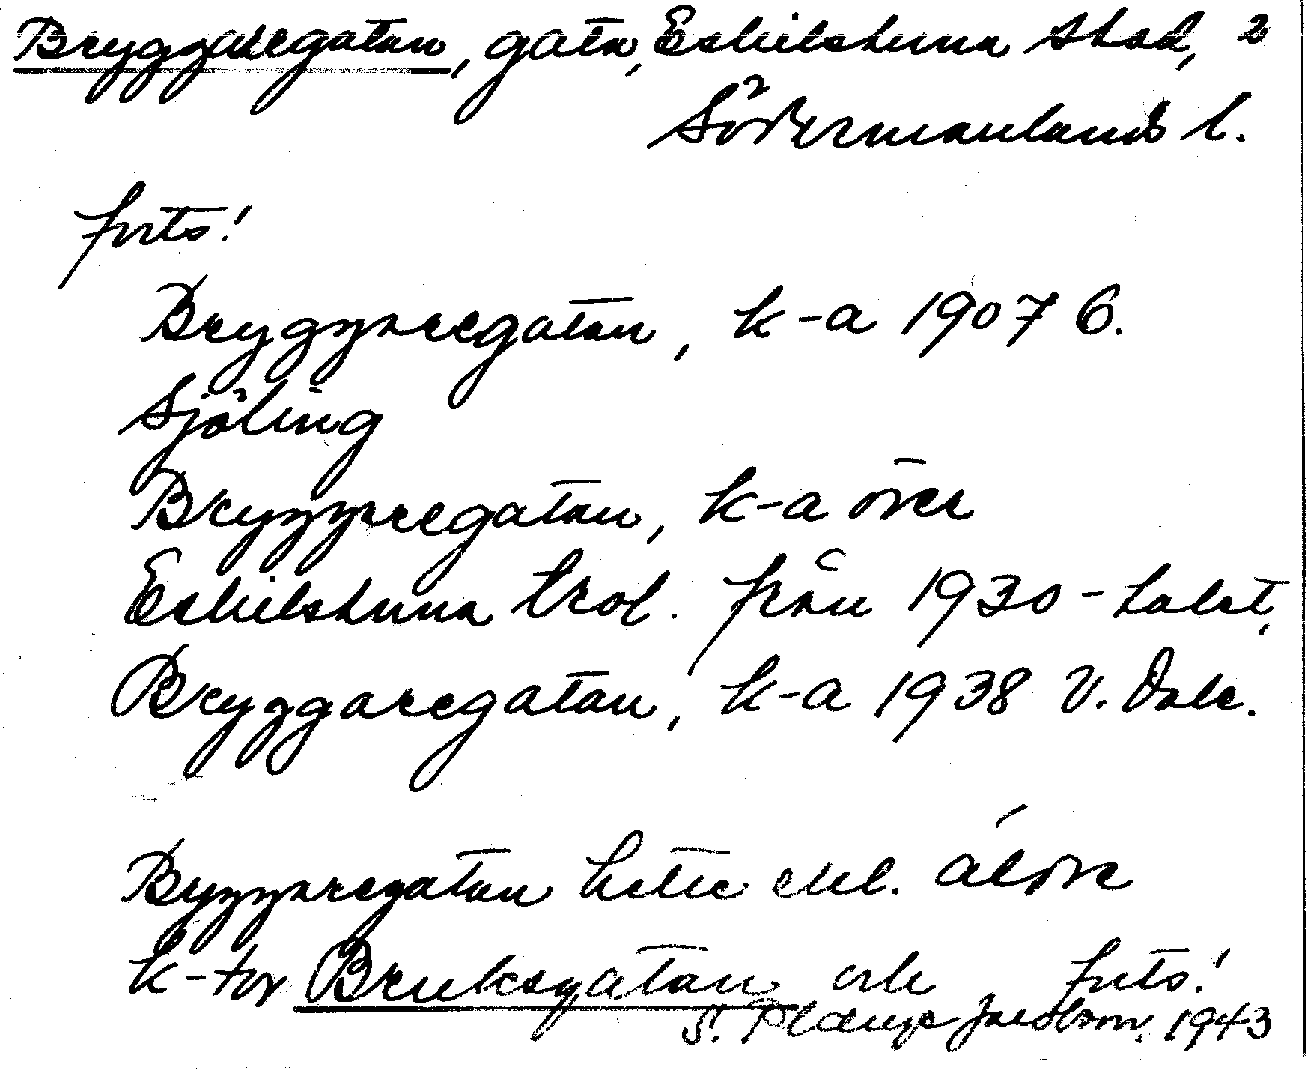 Bryggaregatan, gata, Eskilstuna stad, 2
Södermanlands l.
forts!
Bryggaregatan, k-a 1907 G.
Sjöling
Bryggaregatan, k-a över
Eskilstuna trol. från 1930-talet,
Bryggaregatan, k-a 1938 V. Dahl.
Byggaregatan heter enl. äldre
k-tor Bruksgatan och forts!
S. Jacobson, 1943